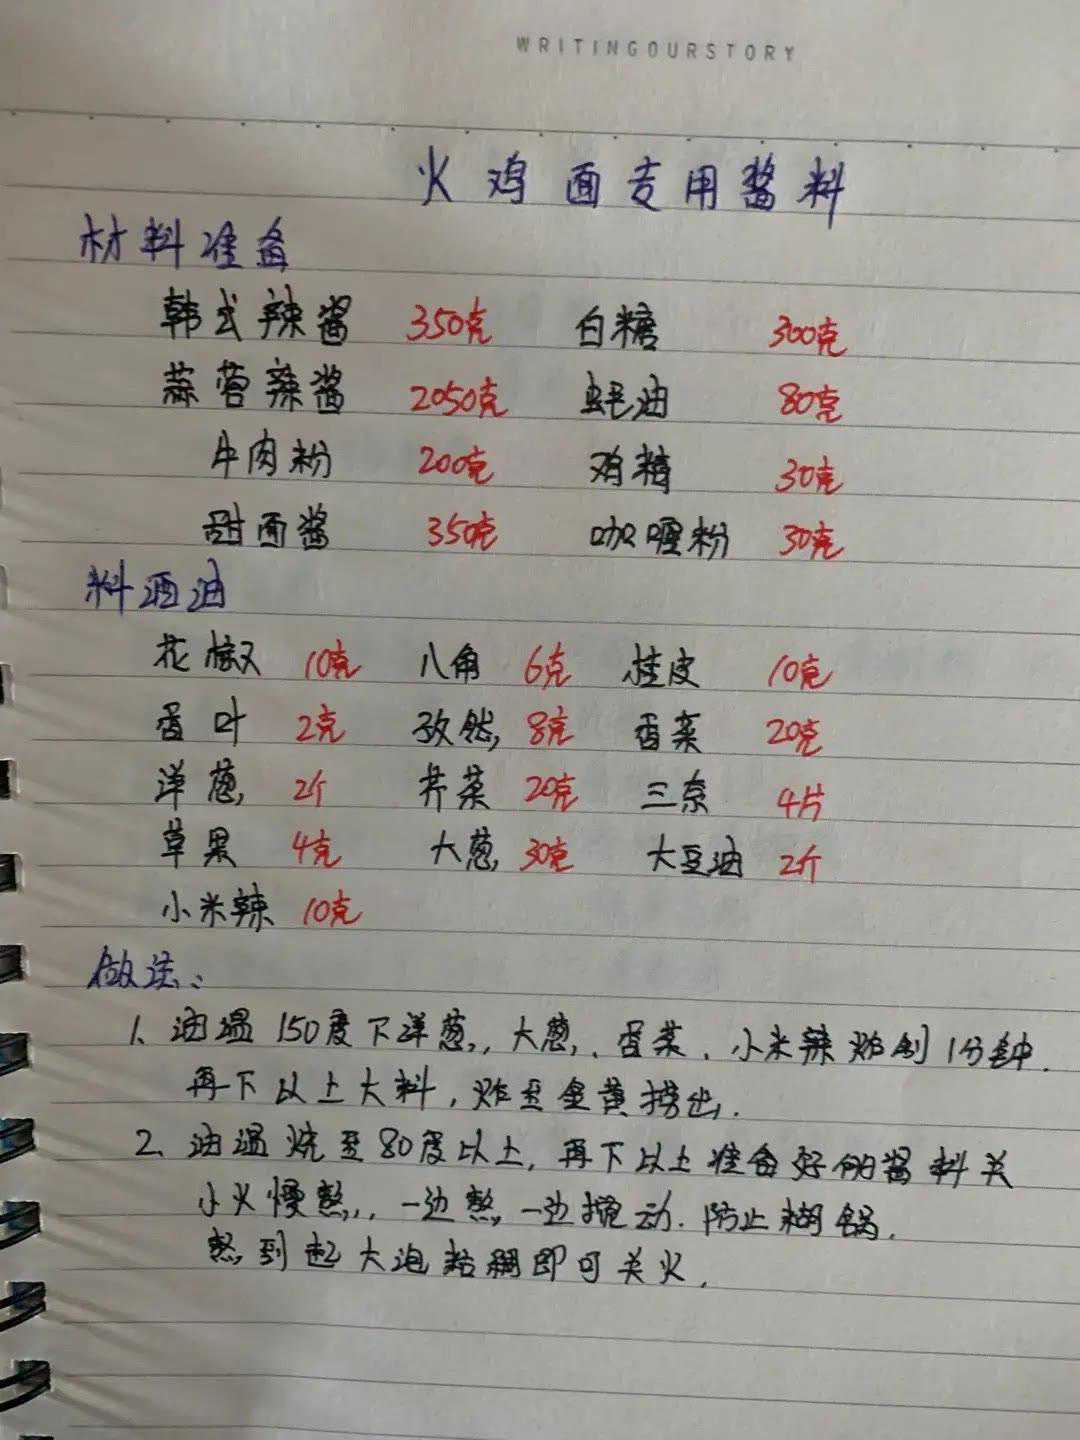 WRITINGOURSTORY
火鸡面专用酱料
材料准备
韩式辣酱 350克 白糖 300克
蒜蓉辣酱 2050克 蚝油 80克
牛肉粉 200克 鸡精 30克
甜面酱 350克 咖喱粉 30克
料酒油
花椒 10克 八角 6克 桂皮 10克
香叶 2克 孜然 8克 香菜 20克
洋葱 2个 芹菜 20克 三奈 4片
草果 4克 大葱 30克 大豆油 2斤
小米辣 10克
做法:
1、油温150度下洋葱,大葱、香菜、小米辣炸制1分钟.
再下以上大料,炸至金黄捞出.
2、油温烧至80度以上,再下以上准备好的酱料关
小火慢熬,一边熬,一边搅动.防止糊锅.
熬到起大泡粘稠即可关火.